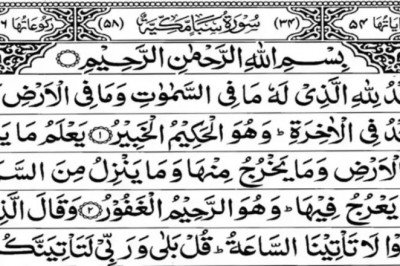 اٰیَاتُهَا ٥٤ (٣٤) سُوْرَةُ سَبَاٍ مَكِّیَّةٌ (٥٨) رُكُوْعَاتُهَا ٦
بِسْمِ اللّٰهِ الرَّحْمٰنِ الرَّحِیْمِ
لِلّٰهِ الَّذِیْ لَهٗ مَا فِی السَّمٰوٰتِ وَمَا فِی الْاَرْضِ
فِی الْاٰخِرَةِ ؕ وَهُوَ الْحَكِیْمُ الْخَبِیْرُ ١ یَعْلَمُ مَا
الْاَرْضِ وَمَا یَخْرُجُ مِنْهَا وَمَا یَنْزِلُ مِنَ
یَعْرُجُ فِیْهَا ؕ وَهُوَ الرَّحِیْمُ الْغَفُوْرُ ٢ وَقَالَ
لَا تَاْتِیْنَا السَّاعَةُ ؕ قُلْ بَلٰی وَرَبِّیْ لَتَاْتِیَنَّكُ